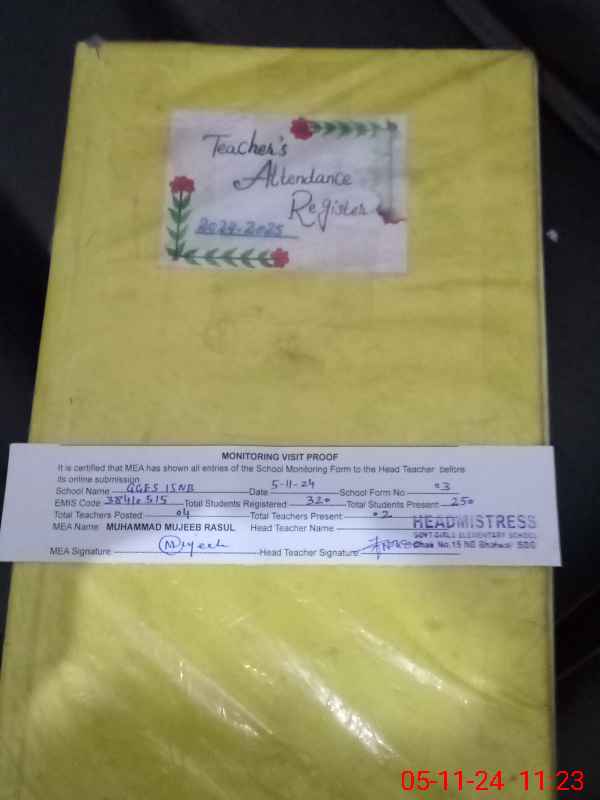 Teacher's
Attendance
Register
2024-2025
MONITORING VISIT PROOF
It is certified that MEA has shown all entries of the School Monitoring Form to the Head Teacher before
its online submission
School Name GGES 15NB Date 5-11-24 School Form No 03
EMIS Code 38410515 Total Students Registered 320 Total Students Present 250
Total Teachers Posted 04 Total Teachers Present 02
MEA Name MUHAMMAD MUJEEB RASUL Head Teacher Name
HEADMISTRESS
GOVT GIRLS ELEMENTARY SCHOOL
Chak No. 15 NB
MEA Signature Mujeeb Head Teacher Signature
05-11-24 11:23